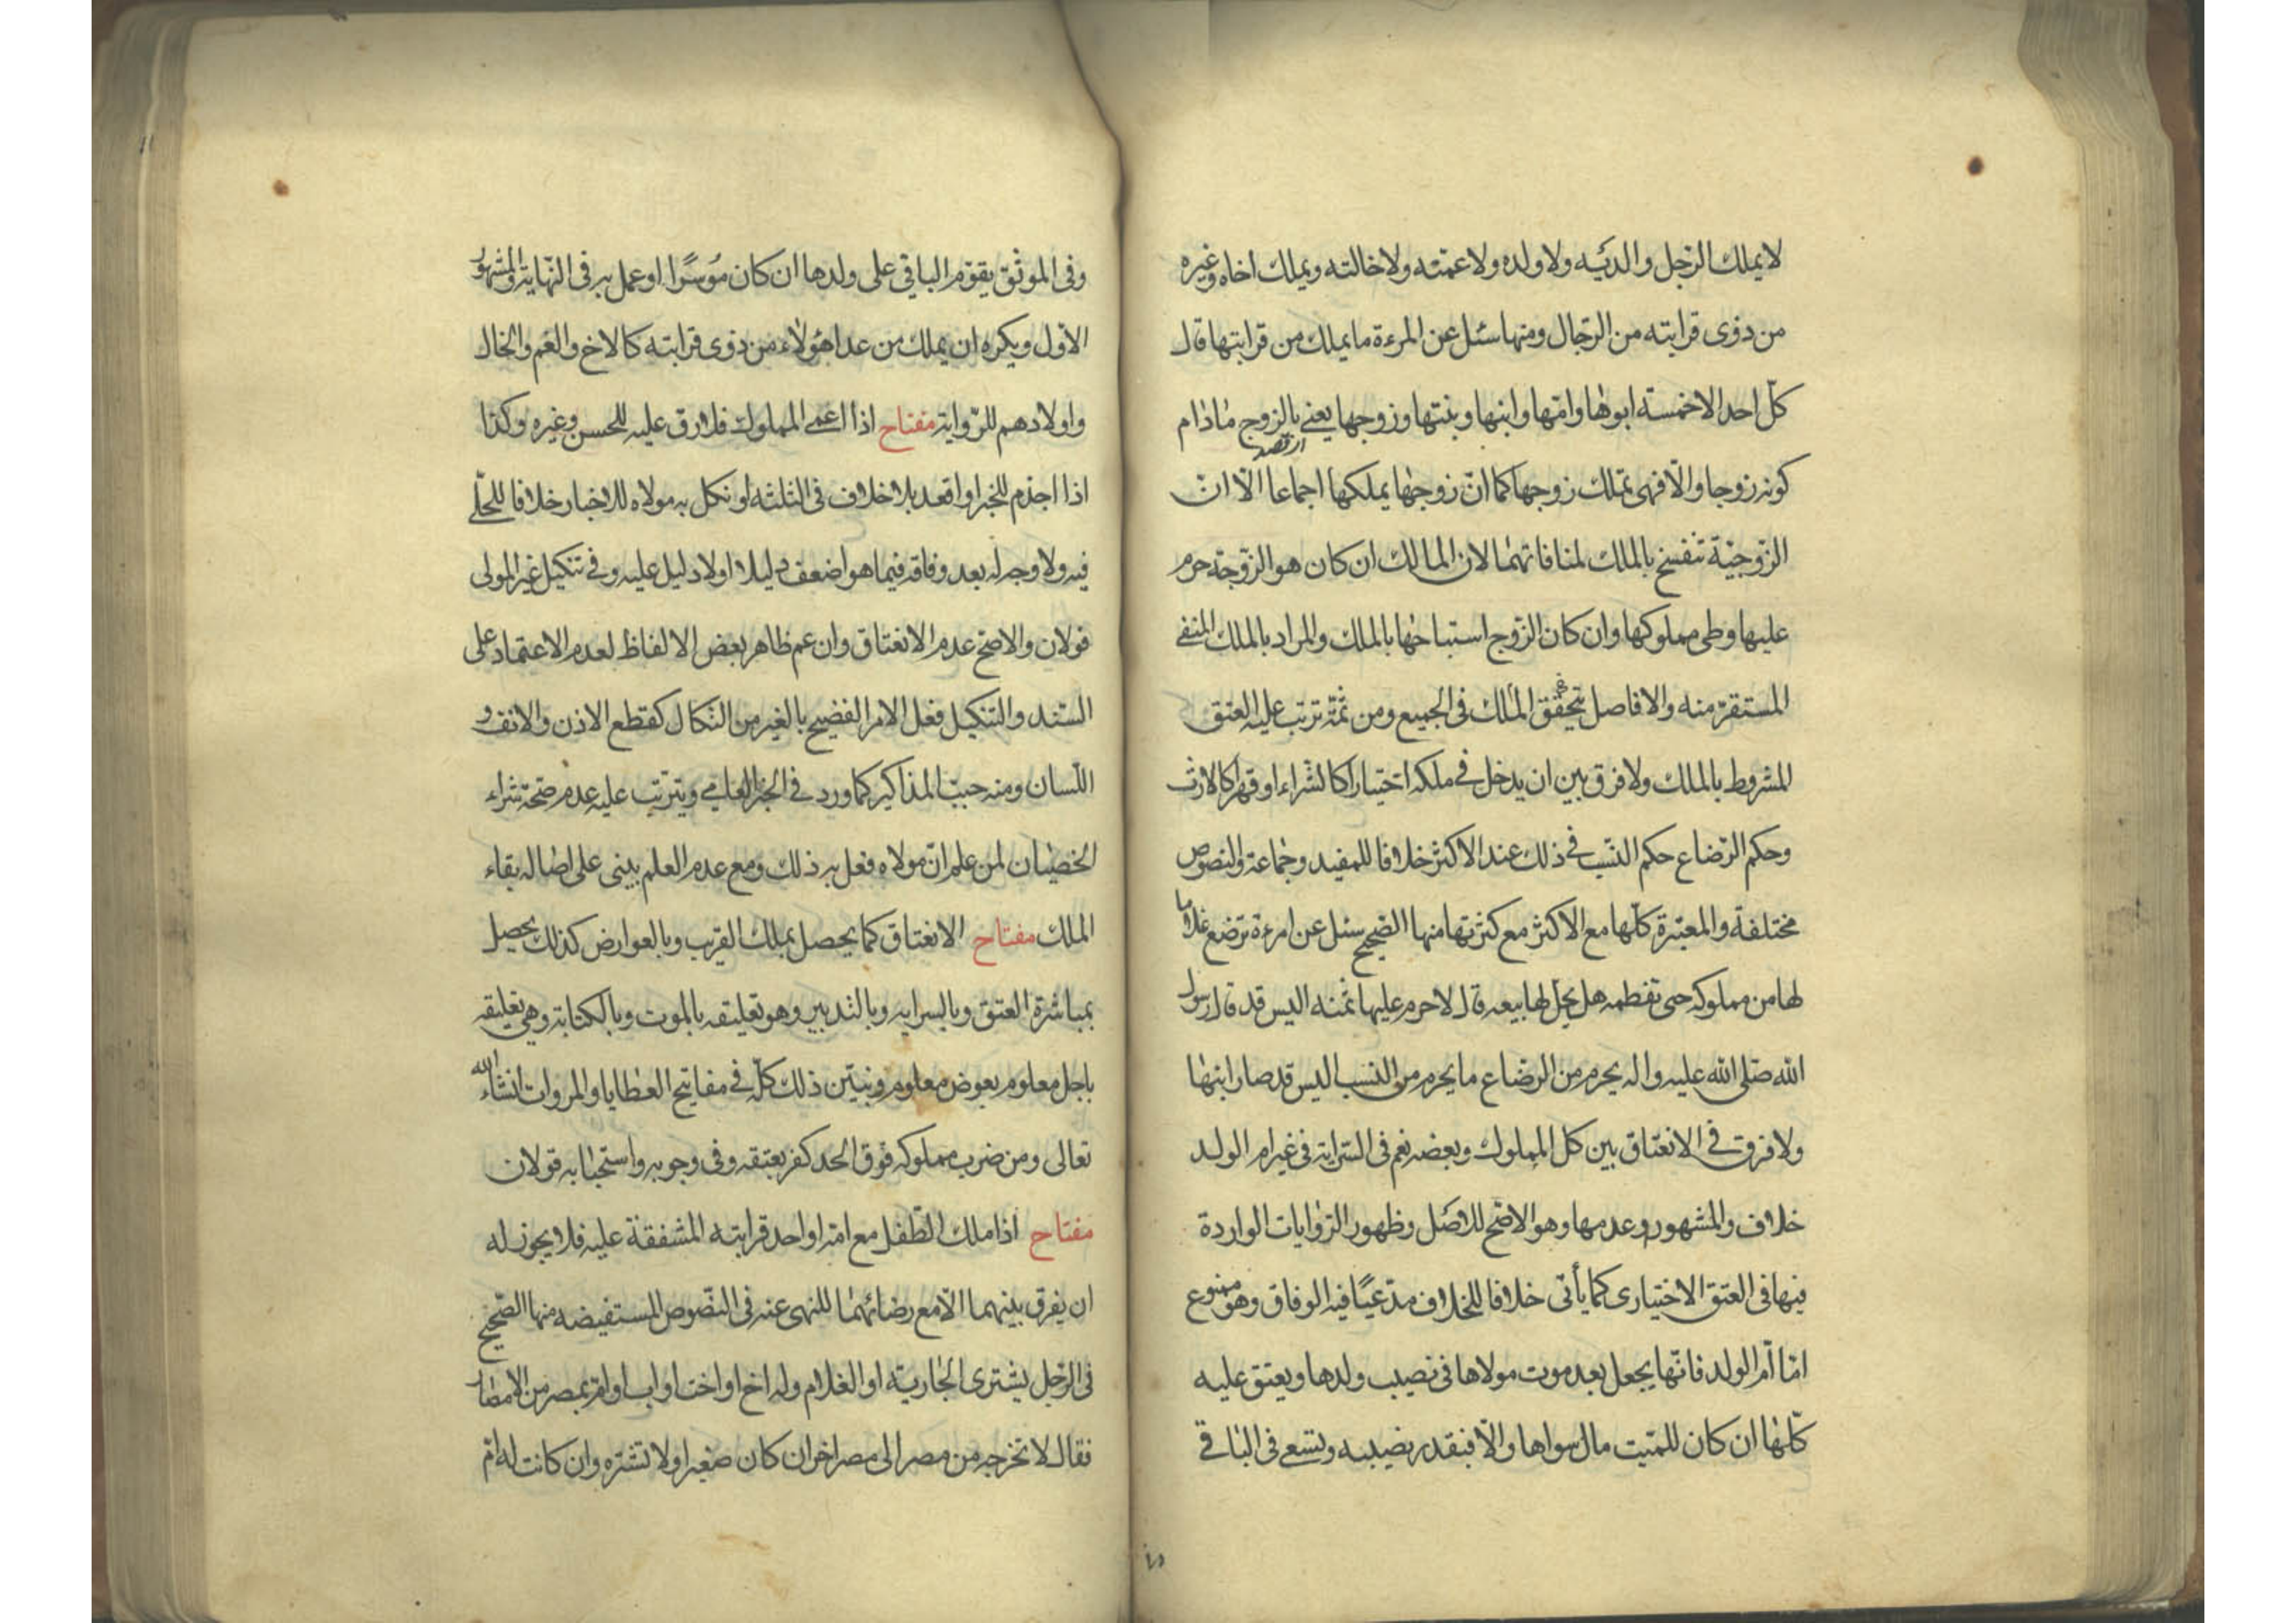 لا يملك الرّجل والديه ولا ولده ولا عمّته ولا خالته ويملك اخاه وغيره
من ذوى قرابته من الرّجال ومنها سئل عن المرءة ما يملك من قرابتها قال
كلّ احد الا خمسة ابوها وامّها وابنها وبنتها وزوجها يعنى بالزوج مادام
كونه زوجا والّا فهى تملك زوجها كما انّ زوجها يملكها اجماعا الّا انّ
الزّوجيّة تنفسخ بالملك لمنافاتهما لان المالك ان كان هو الزّوجة حرم
عليها وطى مملوكها وان كان الزّوج استباحها بالملك والمراد بالملك المنفى
المستقرّ منه والا فاصل تحقّق الملك فى الجميع ومن ثمّة ترتب عليه العتق
المشروط بالملك ولا فرق بين ان يدخل فى ملكه اختيارا كالشراء او قهرا كالارث
وحكم الرّضاع حكم النسّب فى ذلك عند الاكثر خلافا للمفيد وجماعة والنصوص
مختلفة والمعتبرة كلّها مع الاكثر مع كثرتها منها الصّحيح سئل عن امرءة ترضع غلاما
لها من مملوكه حتى تفطمه هل يحلّ لها بيعه قال لا حرم عليها ثمنه اليس قد قال رسول
الله صلى الله عليه واله يحرم من الرضاع ما يحرم من النسب اليس قد صار ابنها
ولا فرق فى الانعتاق بين كل المملوك وبعضه نعم فى السّراية فى غير ام الولد
خلاف والمشهور وعدمها وهو الاصّح للاصل وظهور الرّوايات الواردة
فيها فى العتق الاختيارى كما يأتى خلافا للخلاف مدّعيًا فيه الوفاق وهو ممنوع
امّا امّ الولد فانّها يجعل بعد موت مولاها فى نصيب ولدها ويعتق عليه
كلّها ان كان للميّت مال سواها والّا فبقدر نصيبه وتسعى فى الباقى
وفى الموثّق يقوّم الباقى على ولدها ان كان مؤسرًا وعمل به فى النّهاية والمشهور
الاوّل ويكره ان يملك من عدا هؤلاء من ذوى قرابته كالاخ والعم والخال
واولادهم للرّواية مفتاح اذا اعمى المملوك فلا رق عليه للحسن وغيره وكذا
اذا اجذم للخبر او اقعد بلا خلاف فى الثلثه او نكل به مولاه للاخبار خلافا للحلّى
فيه ولا وجه له بعد وفاقه فيما هو اضعف دليلا او لا دليل عليه وفى تنكيل غير المولى
قولان والاصّح عدم الانعتاق وان عم ظاهر بعض الالفاظ لعدم الاعتماد على
السّند والتنكيل فعل الامر الفضيح بالغير من النكال كقطع الاذن والانف و
اللّسان ومنه جبّ المذاكير كما ورد فى الخبر العامى ويترتب عليه عدم صحّة شراء
الخصيان لمن علم انّ مولاه فعل به ذلك ومع عدم العلم يبنى على اصالة بقاء
الملك مفتاح الانعتاق كما يحصل بملك القريب وبالعوارض كذلك يحصل
بمباشرة العتق وبالسراية وبالتدبير وهو تعليقه بالموت وبالكتابة وهى تعليقه
باجل معلوم بعوض معلوم ونبيّن ذلك كلّه فى مفاتيح العطايا والمروات انشاء الله
تعالى ومن ضرب مملوكه فوق الحد كفر بعتقه وفى وجوبه واستحبابه قولان
مفتاح اذا ملك الطّفل مع امّه او احد قرابته المشفقة عليه فلا يجوز له
ان يفرق بينهما الّا مع رضائهما للنهى عنه فى النّصوص المستفيضه منها الصّحيح
فى الرّجل يشترى الجارية او الغلام وله اخ او اخت او اب او ام بمصر من الامصار
فقال لا تخرجه من مصر الى مصر اخر ان كان صغيرا ولا تشتره وان كانت له امّ